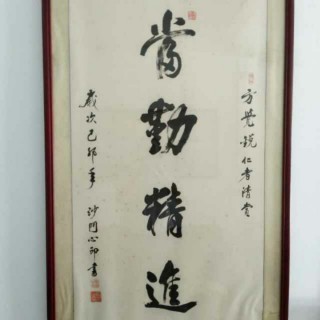 方觉锐仁者清赏
當勤精進
歲次己卯年 沙門心印書